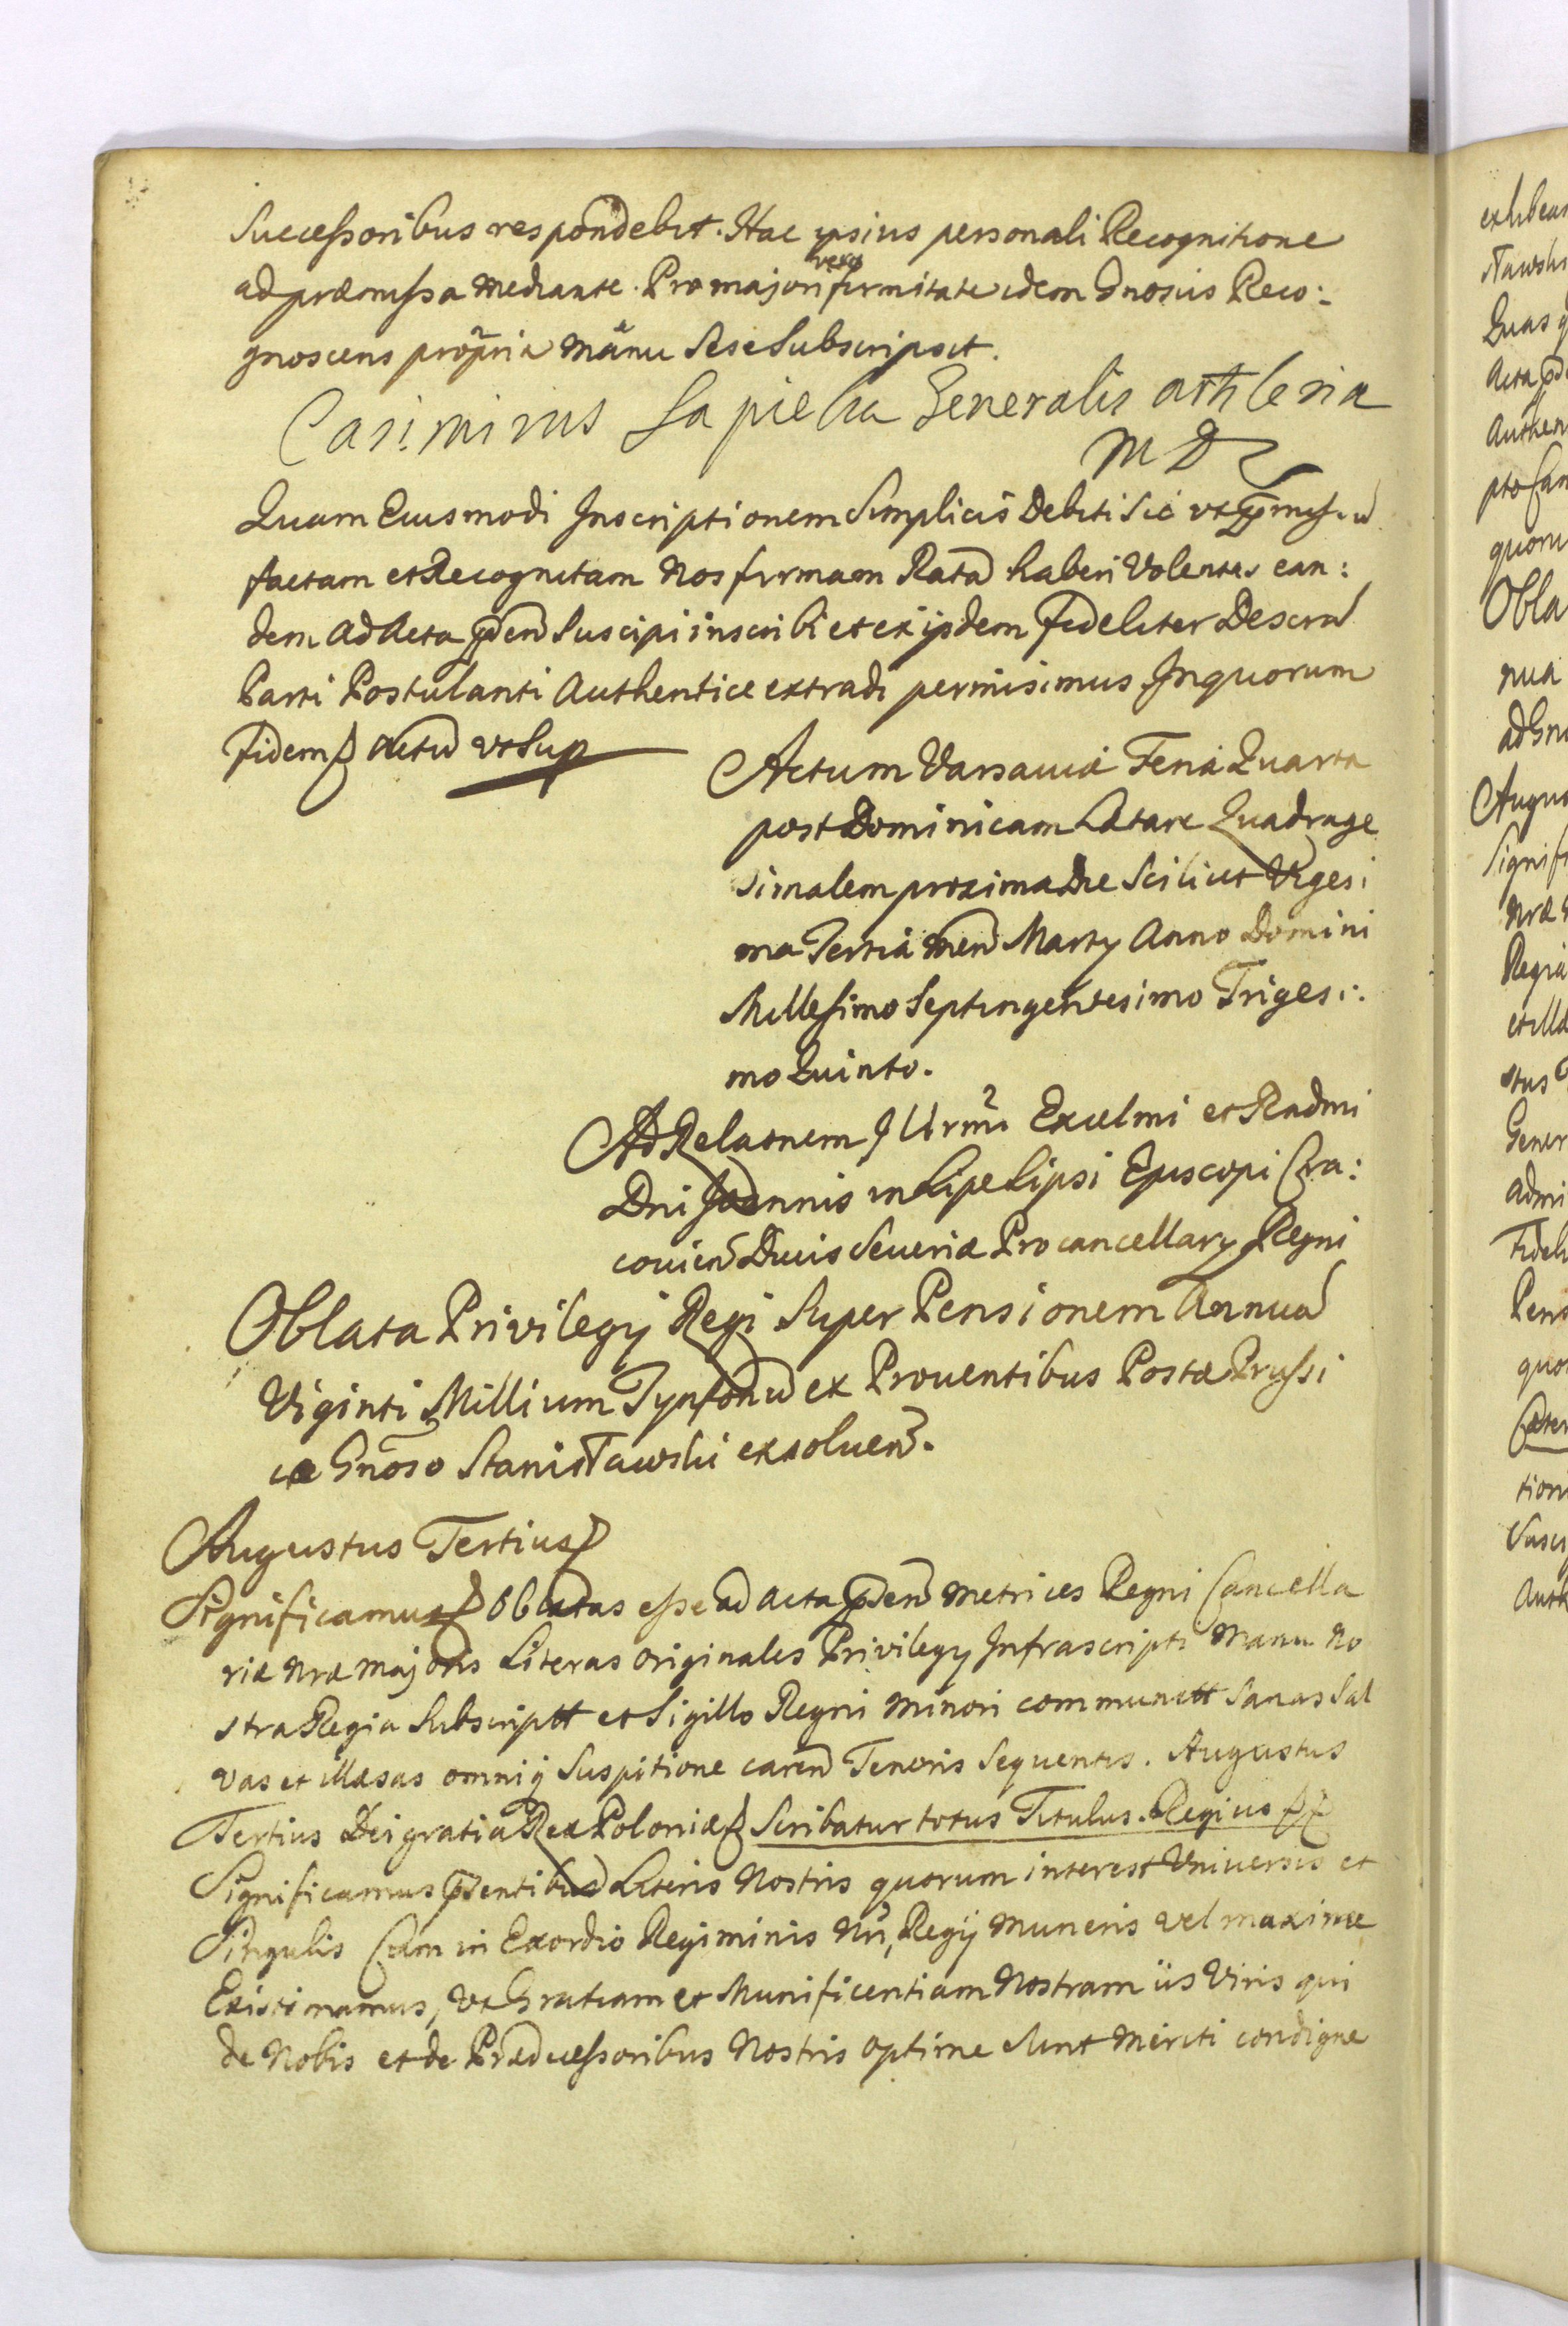 Successoribus respondebit. Hac ipsius personali Recognitione
ad præmissa mediante. Pro majori vero firmitate idem Gnosus Reco:
gnoscens propria manu Sese Subscripsit.
Casimirus Sapieha Generalis arthleria
M D L
Quam Eiusmodi Inscriptionem Simplicis Debiti Sic vt
factam et Recognitam Nos firmam Ratã haberi Volentes ean:
dem ad Acta pñ Suscipi inscribi et ex ijsdem fideliter Descra
Parti Postulanti Authentice extradi permisimus. In quorum
fidem Actũ vt Sup
Actum Varsaviæ Feria Quarta
post Dominicam Lætare Quadrage
simalem proxima Die Scilicet Viges:
ma Tertia Men Martij Anno Domini
Millesimo Septingentesimo Triges:
mo Quinto.
Ad Relaonem Illrmi Excelmi et Rndmi
Dni Joannis in Lipe Lipsi Episcopi Cra:
covien Ducis Severiæ Procancellarij Regni
Oblata Privilegij Regi Super Pensionem Annuã
Viginti Millium Tynfonũ ex Proventibus Postæ Prussi
cæ Gnoso Stanisławski exsoluen.
Augustus Tertius
Significamus Oblatas esse ad acta pñ Metrices Regni Cancella
riæ Nræ Majoris Literas originales Privilegij Infrascripti Manu No
stra Regia Subscriptt et Sigillo Regni Minori communitt Sanas Sal
vas et illæsas omniq Suspitione caren Tenoris Sequentis. Augustus
Tertius Dei gratia Rex Poloniæ Scribatur totus Titulus Regius
Significamus pñtibus Literis Nostris quorum interest Vniversis et
Singulis Cum in Exordio Regiminis Nri, Regij muneris vel maxime
Existimamus, vt Gratiam et Munificentiam Nostram iis Viris qui
de Nobis et de Prædecessoribus Nostris optime Sunt Meriti condigne